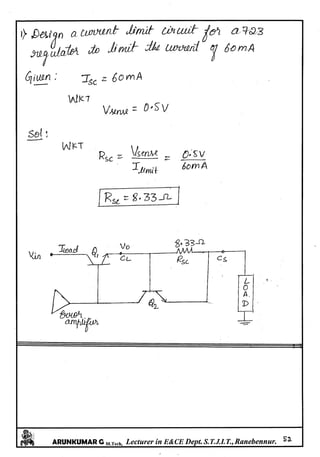 1) Design a current limit circuit for a 723
regulator to limit the current of 60mA
Given : Isc = 60mA
WKT
Vsense = 0.5V
Sol :
WKT
Rsc = Vsense / Ilimit = 0.5V / 60mA
Rsc = 8.33Ω
Vin Iload Q1 Vo CL 8.33Ω Rsc CS
LOAD
Q2
Error
amplifier
ARUNKUMAR G M.Tech, Lecturer in E&CE Dept. S.T.J.I.T., Ranebennur. 52